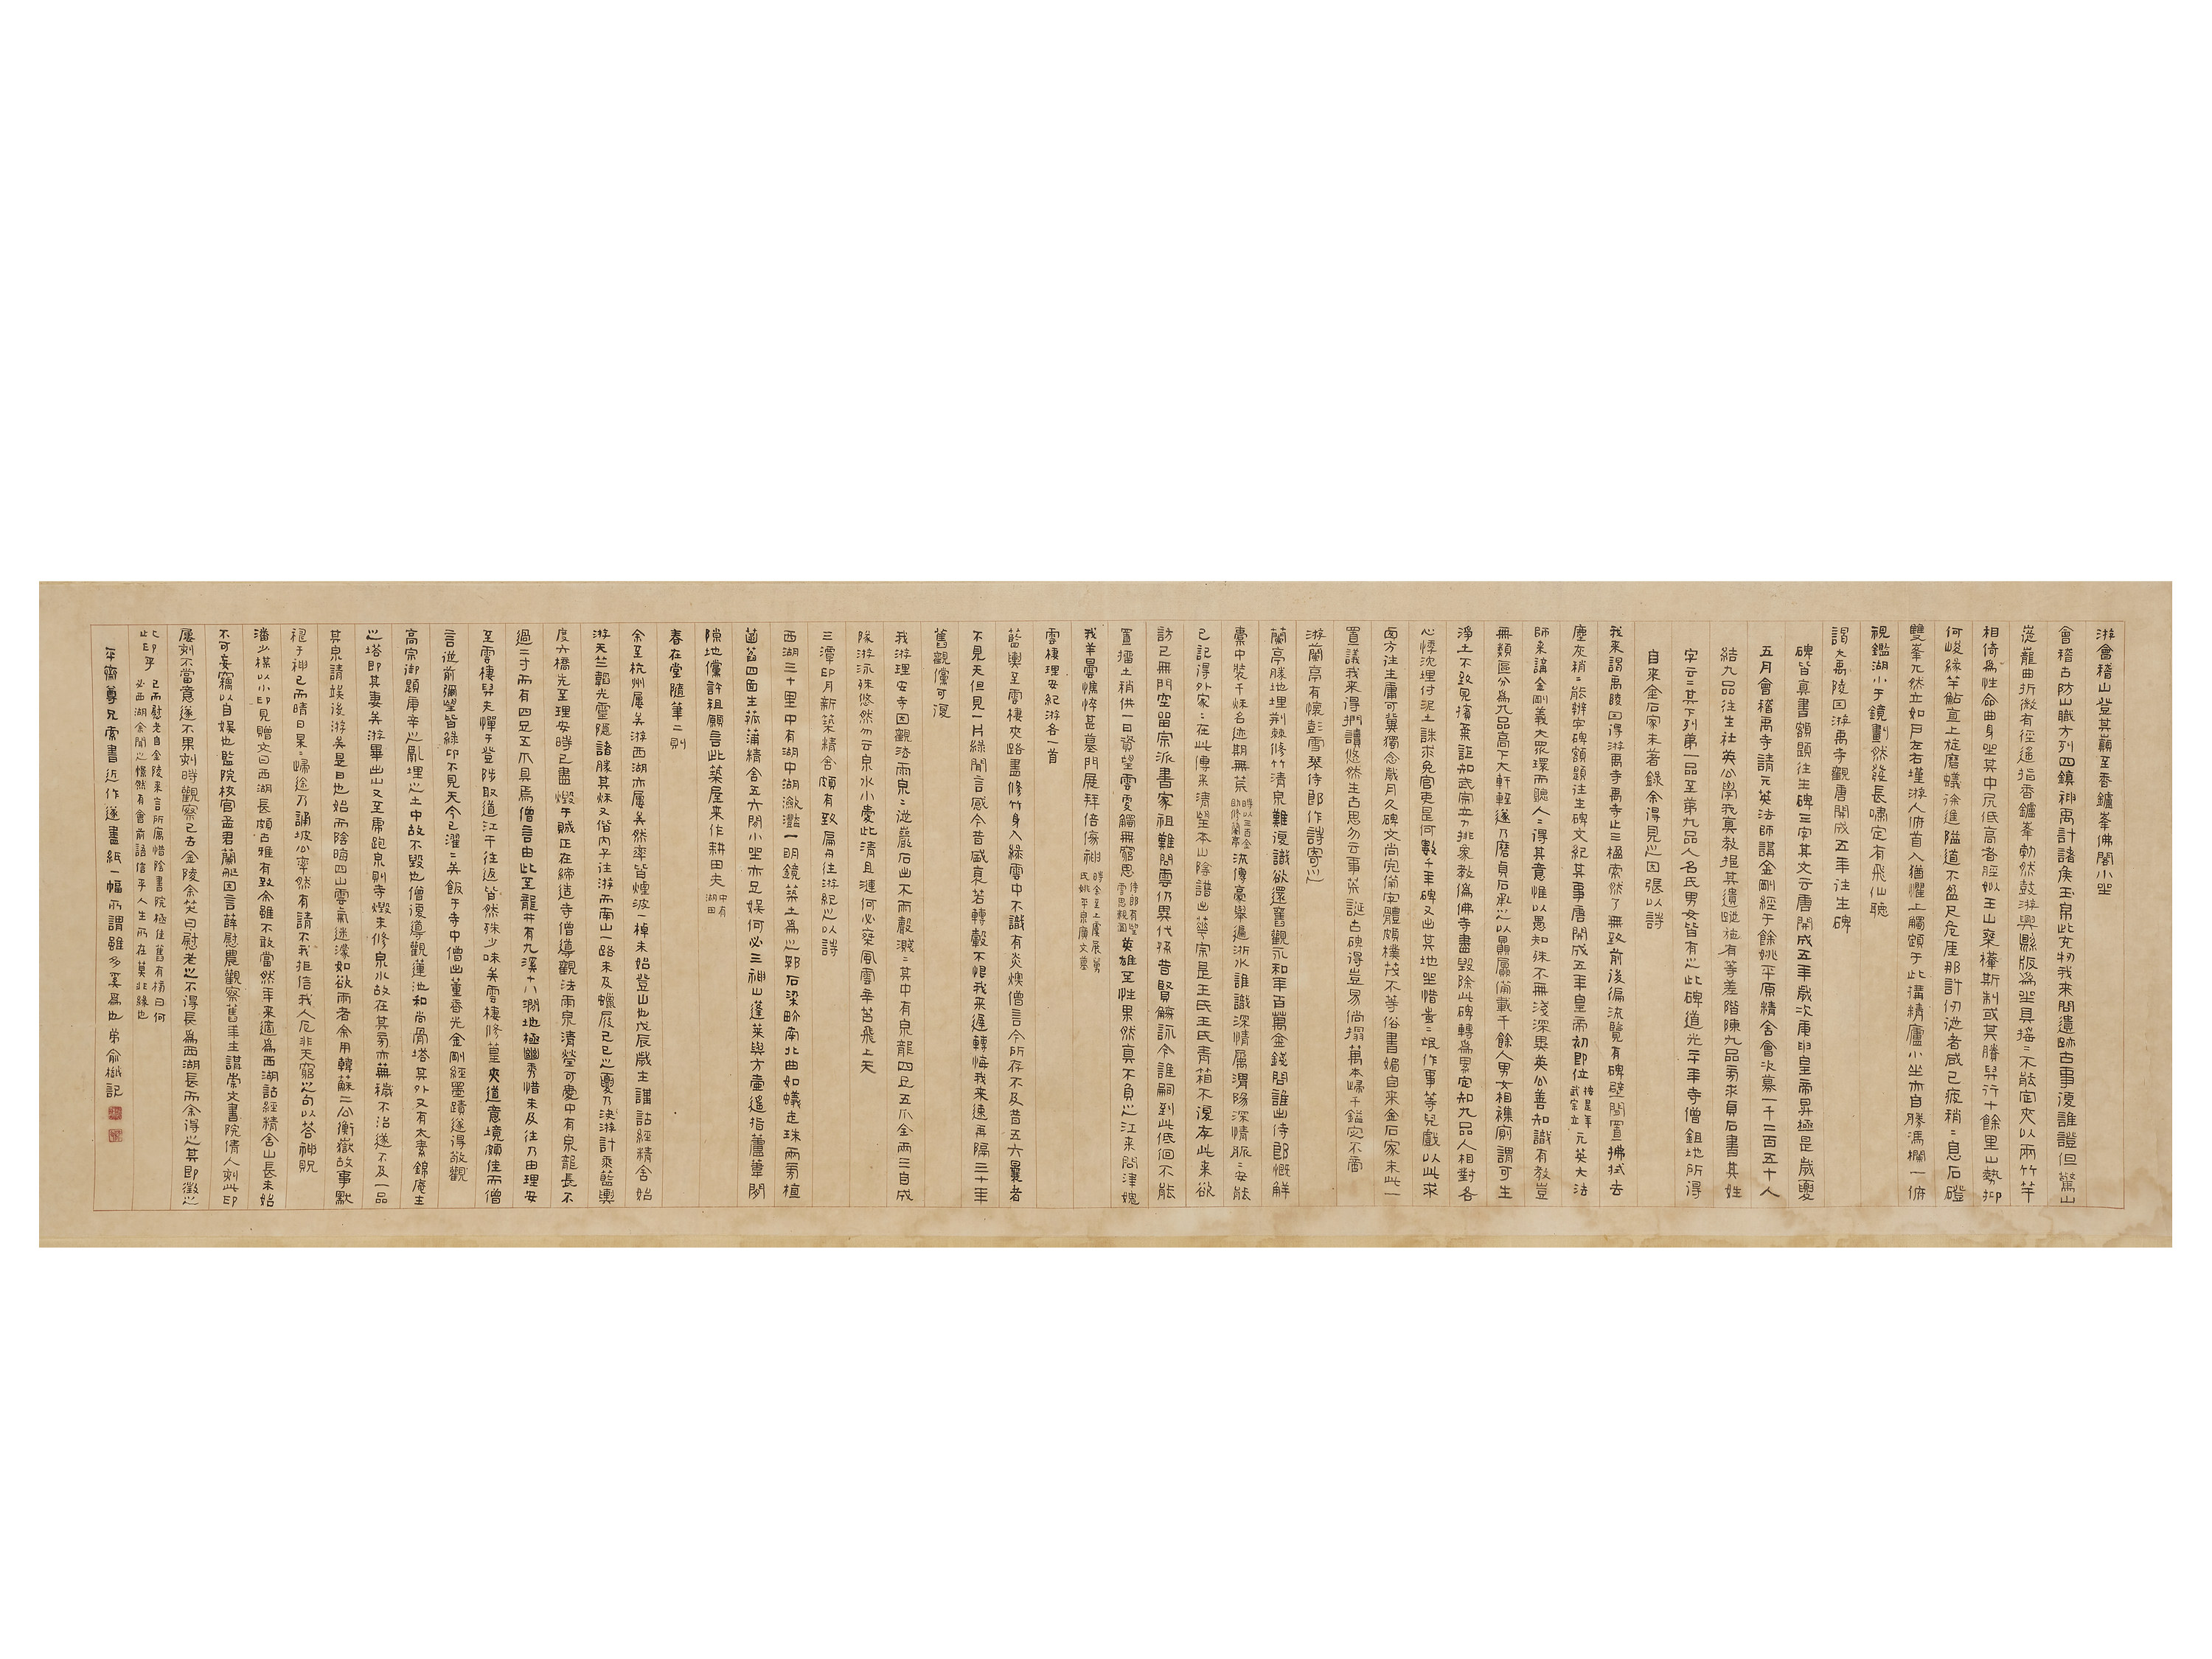 游會稽山登其巔至香鑪峯佛閣小坐
會稽古防山職方列四鎮神禹計諸矦玉帛此充牣我來問遺跡古事復誰證但驚山
從龍曲折微有徑遙指香鑪峯勃然鼓游興縣版為坐具搖二不能定夾以兩竹竿
相倚為性命曲身坐其中尻低高各脛如王山椉欙斯制或其賸舁行十餘里山勢抑
何峻緣竿鮎直上旋磨蟻徐進隘道不盈尺危厓那計仞從者咸已疲稍二息石磴
雙峯兀然立如戶左右墐游人俯首入猶懼上觸頤于此搆精廬小坐亦自勝馮欄一俯
視鑑湖小于鏡劃然發長嘯定有飛仙聽
謁大禹陵因游禹寺觀唐開成五年往生碑
碑皆真書額題往生碑三字其文云唐開成五年歲次庚申皇帝昇極是歲夏
五月會稽禹寺請元英法師講金剛經于餘姚平原精舍會次募一千二百五十人
結九品往生社英公學我真教挹其遺跡雖有等差階陳九品爰求貞石書其姓
字云二其下列第一品至第九品人名氏男女皆有之此碑道光年年寺僧鉏地所得
自來金石家未著錄余得見之因張以詩
我來謁禹陵因得游禹寺禹寺止三楹索然了無致前後徧流覽有碑壁間置拂拭去
塵灰稍二能辦字碑額題往生碑文紀其事唐開成五年皇帝初即位按是年武宗立元英大法
師來講金剛義大眾環而聽人二得其意惟以愚知殊不無淺深異英公善知識有教豈
無類區分為九品高下大軒輊遂乃磨貞石承之以贔屭備載千餘人男女相襍廁謂可生
淨土不致見擯棄詎知武宗立力排象教偽佛寺盡毀除此碑轉為累定知九品人相對各
心悸沈埋付泥土誅求免官吏是何數千年碑又出其地坐惜蚩二氓作事等兒戲以此求
西方往生庸可冀獨念歲月久碑文尚完備字體頗樸茂不等俗書媚自來金石家未此一
置議我來得捫讀悠然生古思勿云事荒誕古碑得豈易倘搨萬本歸千鎰定不啻
游蘭亭有懷彭雪琴侍郎作詩寄之
蘭亭勝地埋荆棘修竹清泉難復識欲還舊觀永和年百萬金錢問誰出侍郎慨解
橐中裝千秌名迹期無荒時以三百金助修蘭亭流傳豪舉遍浙水誰識深情厲渭陽深情脈二安能
已記得外家二在此傳來清望本山陰譜出華宗是王氏王氏青箱不復存此來欲
訪已無門空留宗派書家祖難問雲仍異代孫昔賢觴詠今誰嗣到此低佪不能
置擂土稍供一日資望雲爰觸無窮思侍郎有望雲思親圖英雄至性果然真不負之江來問津媿
我羊曇憔悴甚墓門展拜倍傷神時余至上虞展舅氏姚平泉廣文墓
雲棲理安紀游各一首
籃輿至雲棲夾路畫修竹身入綠雲中不識有炎燠僧言今所存不及昔五六曩者
不見天但見一片綠聞言感今昔盛衰若轉轂不恨我來遲轉悔我來速再隔三十年
舊觀儻可復
我游理安寺因觀法雨泉二從巖石出不雨聲濺二其中有泉龍四足五爪全兩三自成
隊游泳殊悠然勿云泉水小愛此清且漣何必椉風雲辛苦飛上天
三潭印月新築精舍頗有致扁舟往游紀之以詩
西湖三十里中有湖中湖瀲灩一明鏡築土為之郛石梁畍南北曲如蟻走珠兩旁植
菡萏四面生菰蒲精舍五六間小坐亦足娛何必三神山蓬萊與方壺遙指蘆葦閒
隙地儻許租願言此築屋來作耕田夫中有湖田
春在堂隨筆二則
余至杭州屢矣游西湖亦屢矣然率皆煙波一棹未始登山也戊辰歲主講詁經精舍始
游天竺韜光靈隱諸勝其秌又偕內子往游而南山一路未及蠟屐己巳之夏乃決游計乘籃輿
度六橋先至理安時已盡燬于賊正在締造寺僧導觀法雨泉清瑩可愛中有泉龍長不
過二寸而有四足五爪具焉僧言由此至龍井有九溪十八澗地極幽秀惜未及往乃由理安
至雲棲舁夫憚于登陟取道江干往返皆然殊少味矣雲棲修篁夾道意境頗佳而僧
言從前彌望皆綠卬不見天今已濯二矣飯于寺中僧出董香光金剛經墨蹟遂得敬觀
高宗御題庚辛之亂埋之土中故不毀也僧復導觀蓮池和尚骨塔其外又有太素錦庵主
之塔即其妻矣游畢出山又至虎跑泉則寺燬未修泉水故在其旁亦蕪穢不治遂不及一品
其泉請竢後游矣是日也始而陰晦四山雲氣迷濛如欲雨者余用韓蘇二公衡嶽故事默
禱于神已而晴日杲二歸途乃誦坡公率然有請不我拒信我人厄非天窮之句以荅神貺
潘少楳以小印見贈文曰西湖長頗古雅有致余雖不敢當然年來適為西湖詁經精舍山長未始
不可妄竊以自娛也監院校官孟君蘭艇因言薛慰農觀察舊年主講崇文書院倩人刻此印
屢刻不當意遂不果刻時觀察已去金陵余笑曰慰老之不得長為西湖長而余得之其即徵之
此印乎已而慰老自金陵來言所居惜陰書院極佳舊有榜曰何必西湖余聞之憮然有會前語信乎人生所在莫非緣也
平齋尊兄索書近作遂盡紙一幅所謂雖多奚為也弟俞樾記